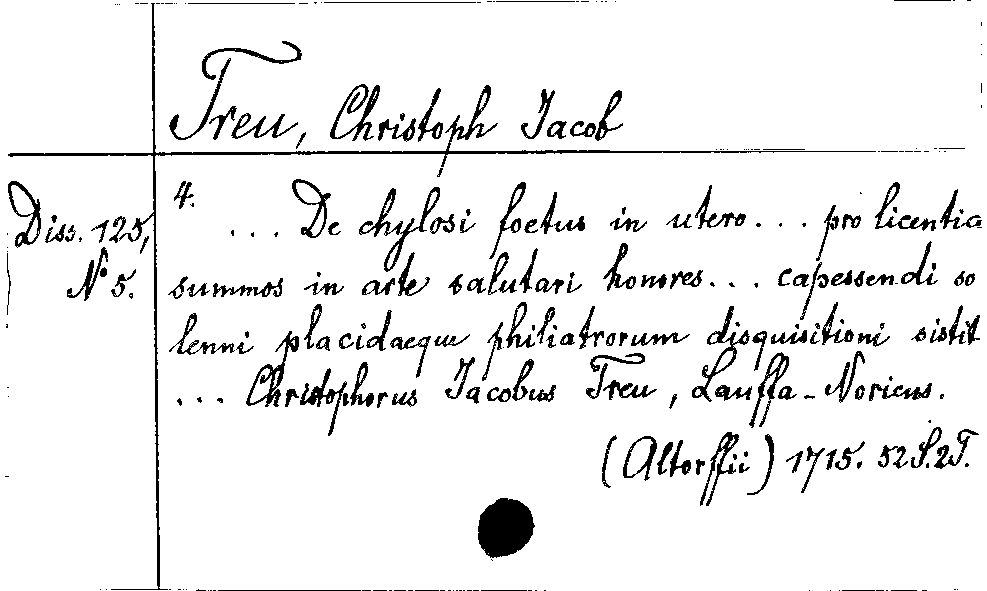 Treu, Christoph Jacob
Diss. 125,
No 5.
4.
... De chylosi foetus in utero... pro licentia
summos in arte salutari honores... capessendi so
lenni placidaeque philiatrorum disquisitioni sistit
... Christophorus Jacobus Treu, Lauffa-Noricus.
(Altorffii) 1715. 52 S. 2 T.